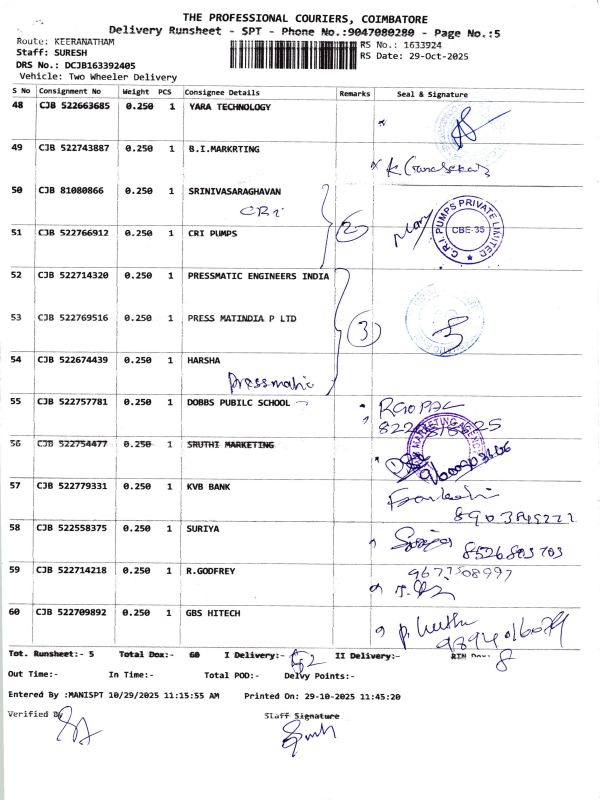 THE PROFESSIONAL COURIERS, COIMBATORE
Delivery Runsheet - SPT - Phone No.:9047080280 - Page No.:5
Route: KEERANATHAM RS No.: 1633924
Staff: SURESH RS Date: 29-Oct-2025
DRS No.: DCJB163392405
Vehicle: Two Wheeler Delivery
S No Consignment No Weight PCS Consignee Details Remarks Seal & Signature
48 CJB 522663685 0.250 1 YARA TECHNOLOGY
49 CJB 522743887 0.250 1 B.I.MARKRTING
50 CJB 81080866 0.250 1 SRINIVASARAGHAVAN
CRI
2
C.R.I. PUMPS PRIVATE LIMITED
CBE-35
51 CJB 522766912 0.250 1 CRI PUMPS
52 CJB 522714320 0.250 1 PRESSMATIC ENGINEERS INDIA
53 CJB 522769516 0.250 1 PRESS MATINDIA P LTD
3
54 CJB 522674439 0.250 1 HARSHA
Pressmatic
55 CJB 522757781 0.250 1 DOBBS PUBILC SCHOOL
MARKETING
56 CJB 522754477 0.250 1 SRUTHI MARKETING
57 CJB 522779331 0.250 1 KVB BANK
58 CJB 522558375 0.250 1 SURIYA
59 CJB 522714218 0.250 1 R.GODFREY
60 CJB 522709892 0.250 1 GBS HITECH
Tot. Runsheet:- 5 Total Dox:- 60 I Delivery:- 52 II Delivery:- 8
Out Time:- In Time:- Total POD:- Delvy Points:-
Entered By :MANISPT 10/29/2025 11:15:55 AM Printed On: 29-10-2025 11:45:20
Verified By Staff Signature